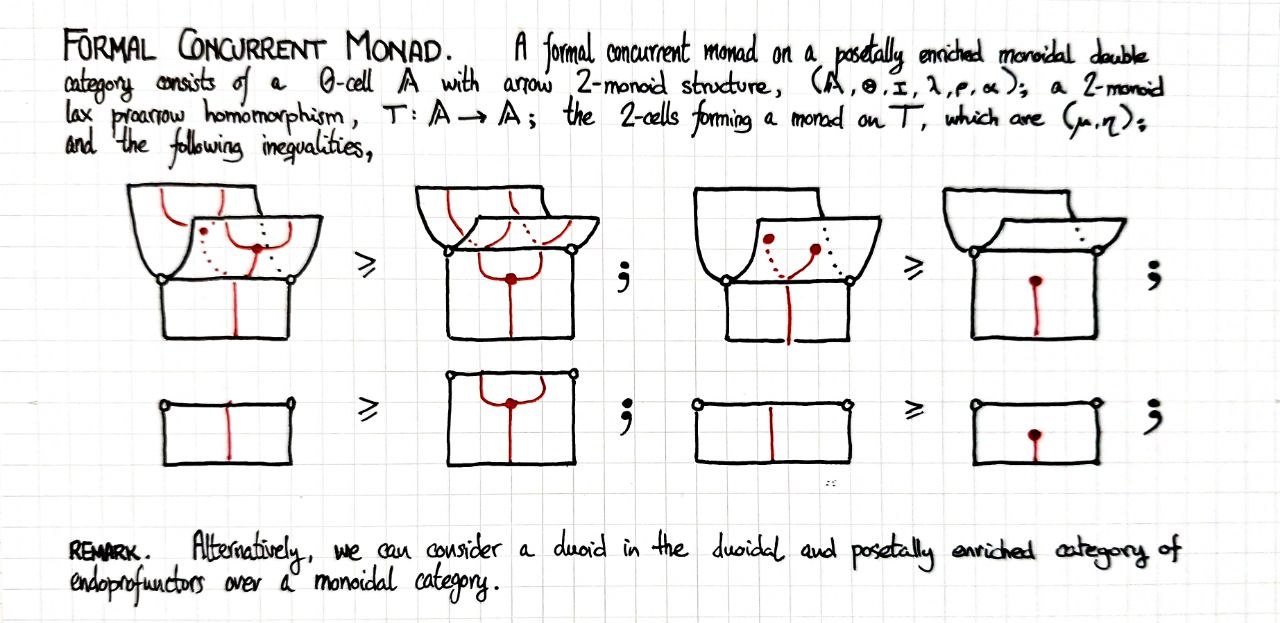 FORMAL CONCURRENT MONAD. A formal concurrent monad on a posetally enriched monoidal double
category consists of a 0-cell 𝔸 with arrow 2-monoid structure, (𝔸, ⊗, I, λ, ρ, α); a 2-monoid
lax proarrow homomorphism, T: 𝔸 → 𝔸; the 2-cells forming a monad on T, which are (μ,η);
and the following inequalities,
≥ ; ≥ ;
≥ ; ≥ ;
REMARK. Alternatively, we can consider a duoid in the duoidal and posetally enriched category of
endoprofunctors over a monoidal category.